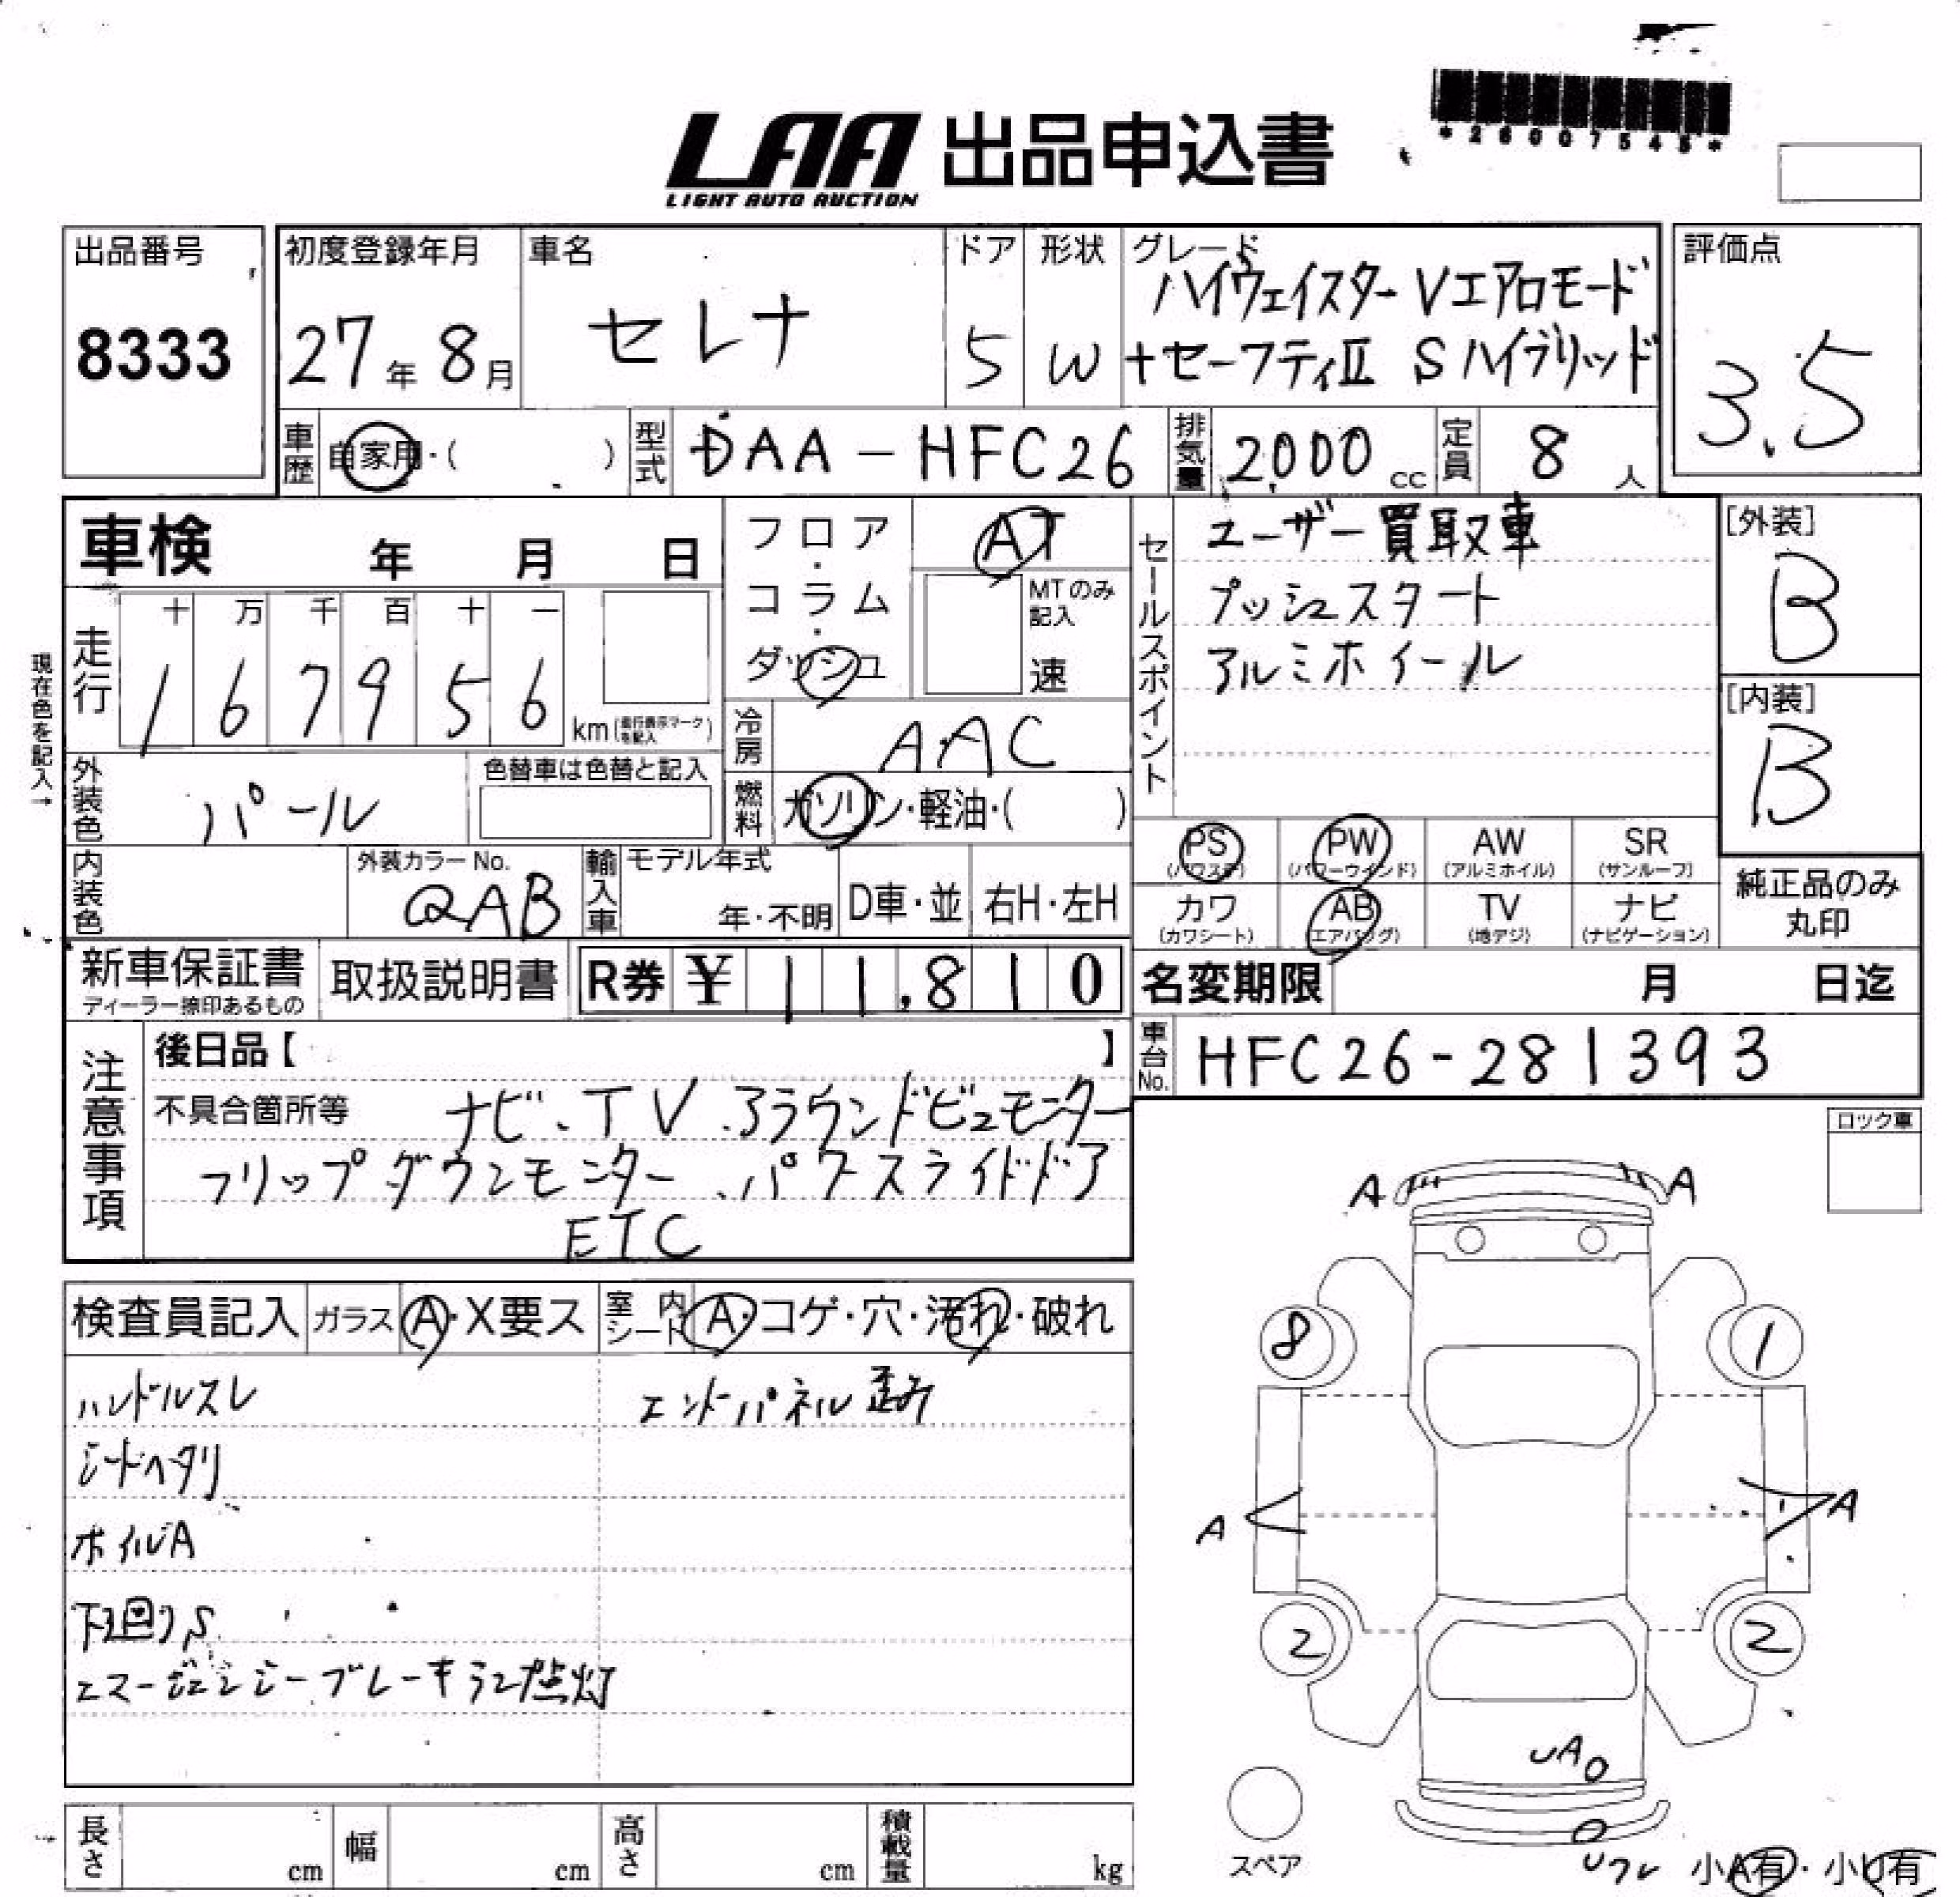 *26007545*
LAA 出品申込書
LIGHT AUTO AUCTION
出品番号
8333
初度登録年月
27年8月
車名
セレナ
ドア
5
形状
W
グレード
ハイウェイスターVエアロモード
+セーフティⅡ Sハイブリッド
評価点
3.5
車歴 自家用・( )
型式 DAA-HFC26
排気量 2000cc
定員 8人
車検 年 月 日
フロア・コラム・ダッシュ
AT
MTのみ記入
速
セールスポイント
ユーザー買取車
プッシュスタート
アルミホイール
[外装]
B
[内装]
B
現在色を記入→
走行
十 万 千 百 十 一
1 6 7 9 5 6
km(走行表示マークを記入)
冷房 AAC
燃料 ガソリン・軽油・( )
外装色 パール
色替車は色替と記入
内装色
外装カラーNo.
QAB
輸入車
モデル年式
年・不明
D車・並
右H・左H
PS
(パワステ)
PW
(パワーウインド)
AW
(アルミホイル)
SR
(サンルーフ)
カワ
(カワシート)
AB
(エアバッグ)
TV
(地デジ)
ナビ
(ナビゲーション)
純正品のみ
丸印
新車保証書
ディーラー捺印あるもの
取扱説明書
R券 ¥11,810
名変期限 月 日迄
車台No. HFC26-281393
注意事項
後日品【 】
不具合箇所等 ナビ.TV.アラウンドビューモニター
フリップダウンモニター.パワースライドドア
ETC
ロック車
検査員記入 ガラス A・X要ス 室内シート A・コゲ・穴・汚れ・破れ
ハンドルスレ
エンドパネル歪み
シートヘタリ
ホイルA
下廻りS
エマージェンシーブレーキランプ点灯
A A
8 1
A A
2 2
UA
スペア
小A有・小U有
長さ cm
幅 cm
高さ cm
積載量 kg